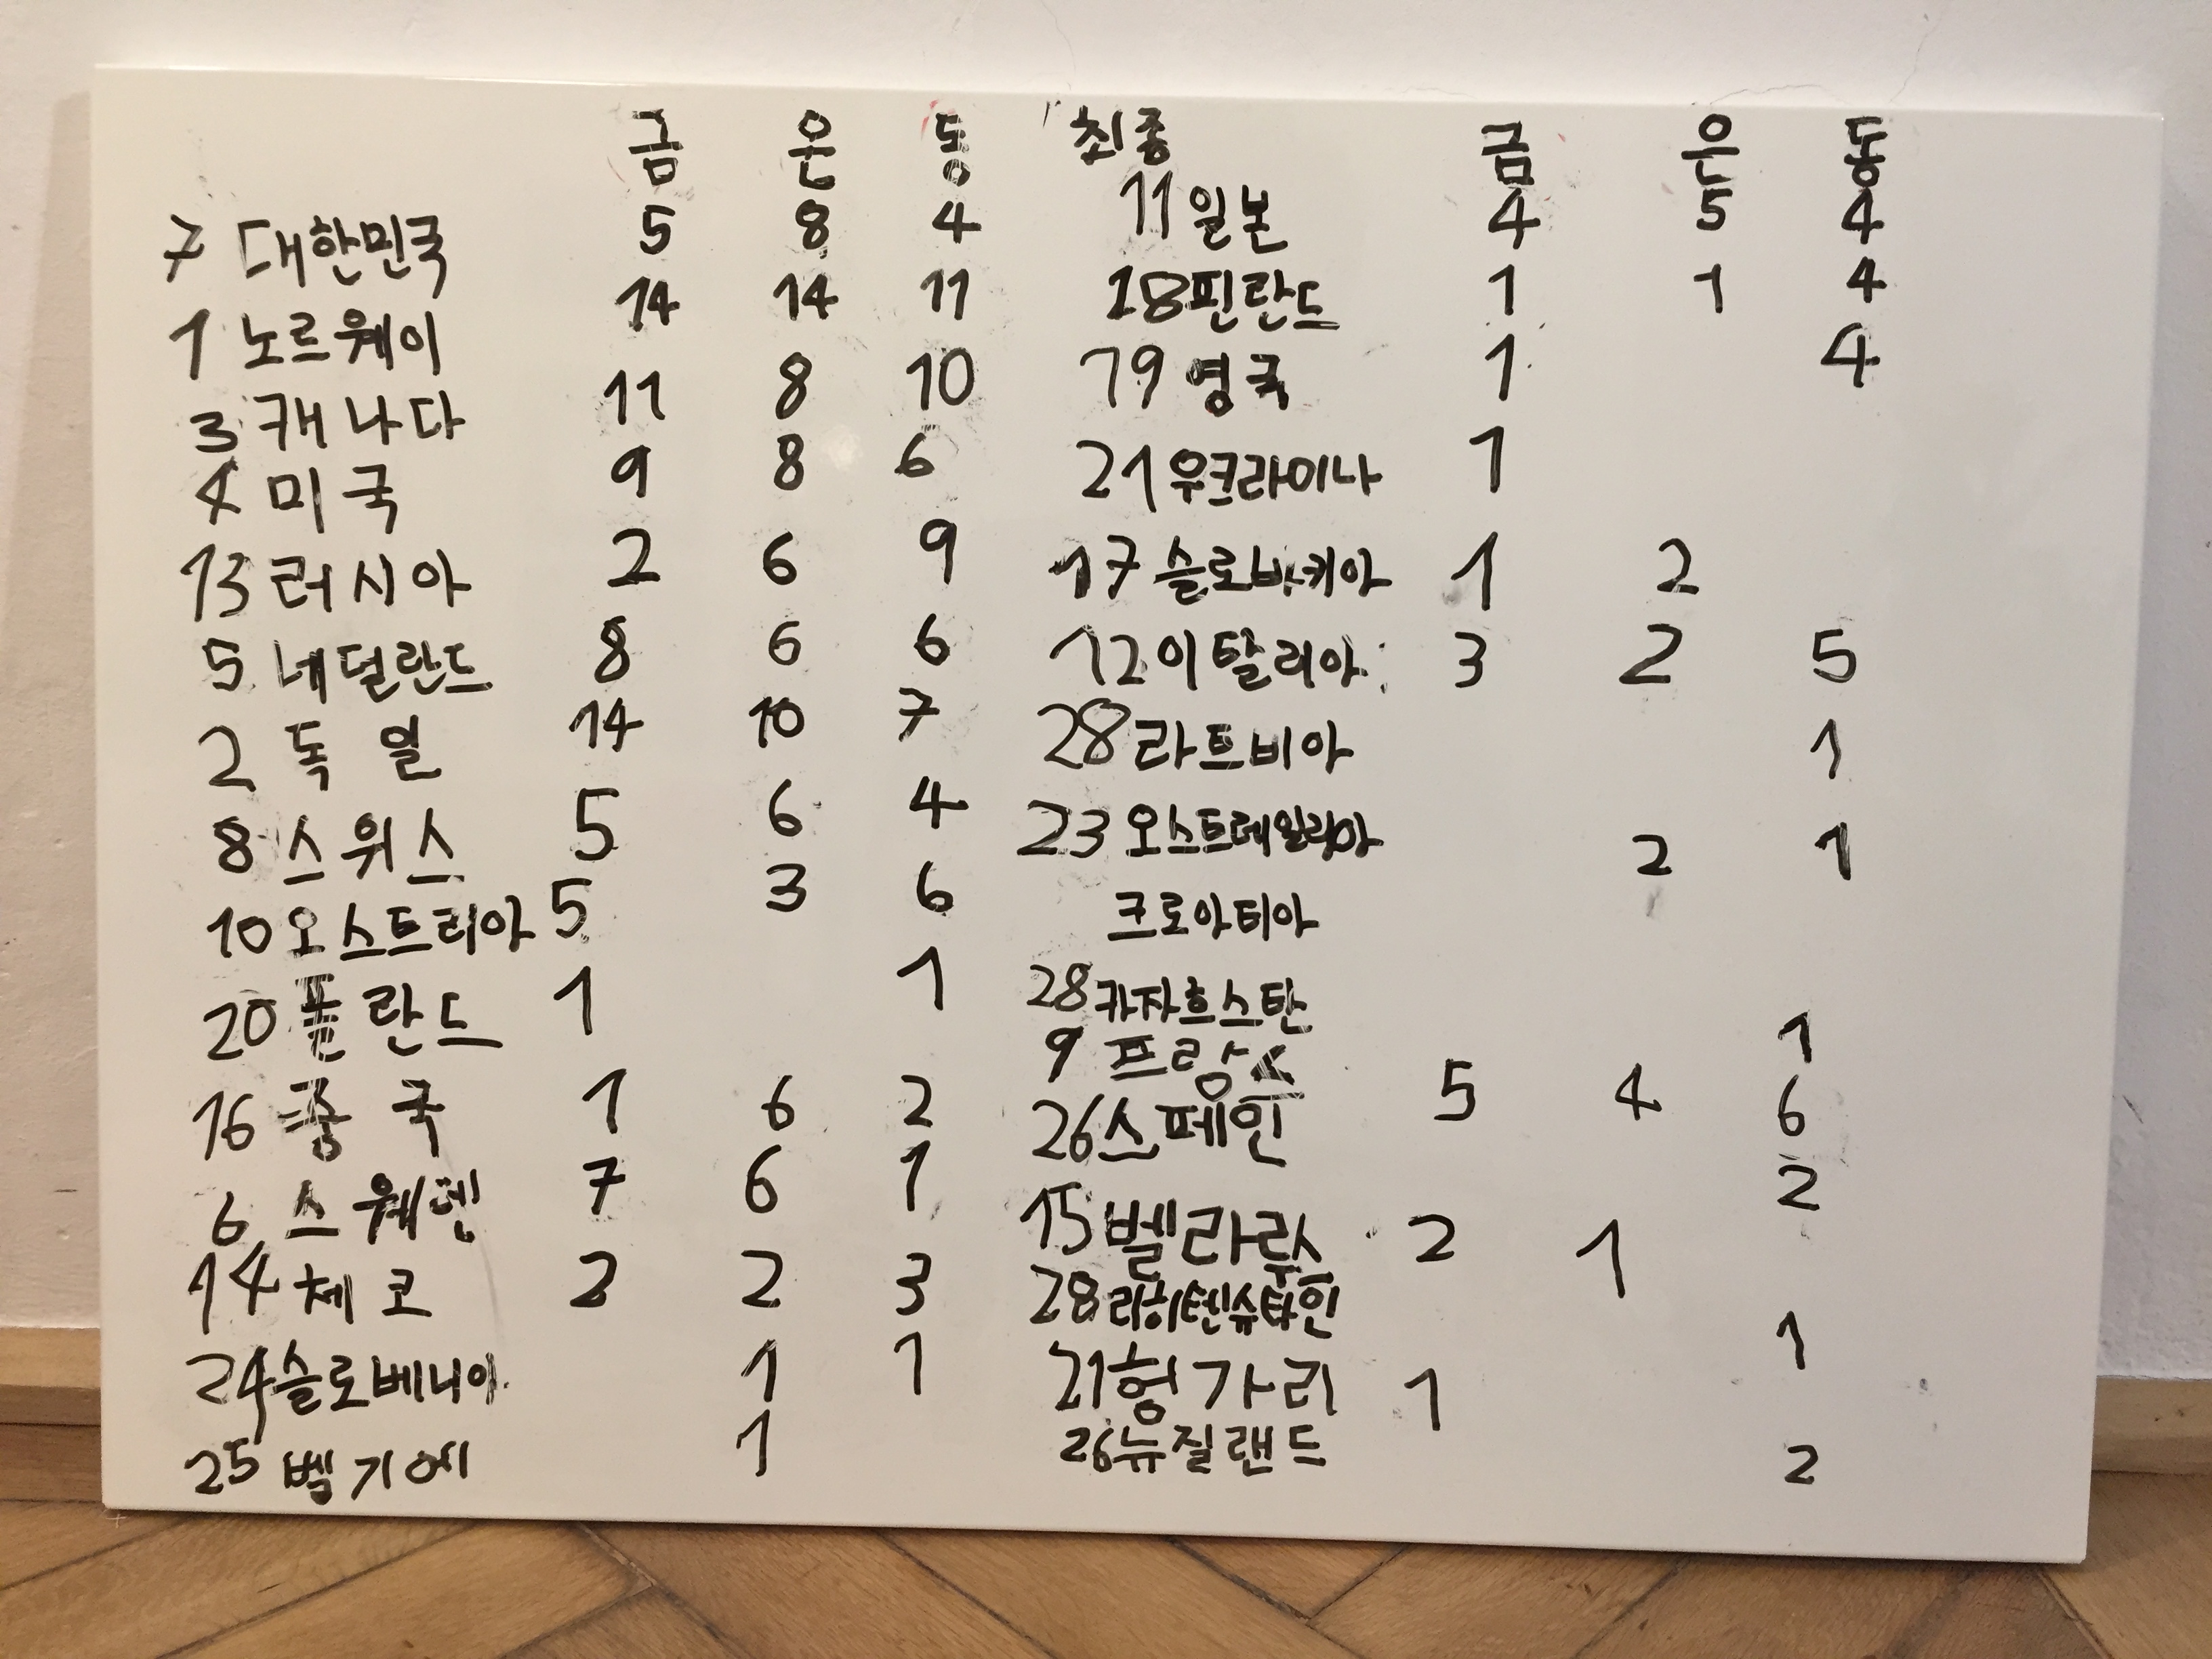 금 은 동
7 대한민국 5 8 4
1 노르웨이 14 14 11
3 캐나다 11 8 10
4 미국 9 8 6
13 러시아 2 6 9
5 네덜란드 8 6 6
2 독일 14 10 7
8 스위스 5 6 4
10 오스트리아 5 3 6
20 폴란드 1 1
16 중국 1 6 2
6 스웨덴 7 6 1
14 체코 2 2 3
24 슬로베니아 1 1
25 벨기에 1
최종 금 은 동
11 일본 4 5 4
18 핀란드 1 1 4
19 영국 1 4
21 우크라이나 1
17 슬로바키아 1 2
12 이탈리아 3 2 5
28 라트비아 1
23 오스트레일리아 2 1
크로아티아
28 카자흐스탄 1
9 프랑스 5 4 6
26 스페인 2
15 벨라루스 2 1
28 리히텐슈타인 1
21 헝가리 1
26 뉴질랜드 2